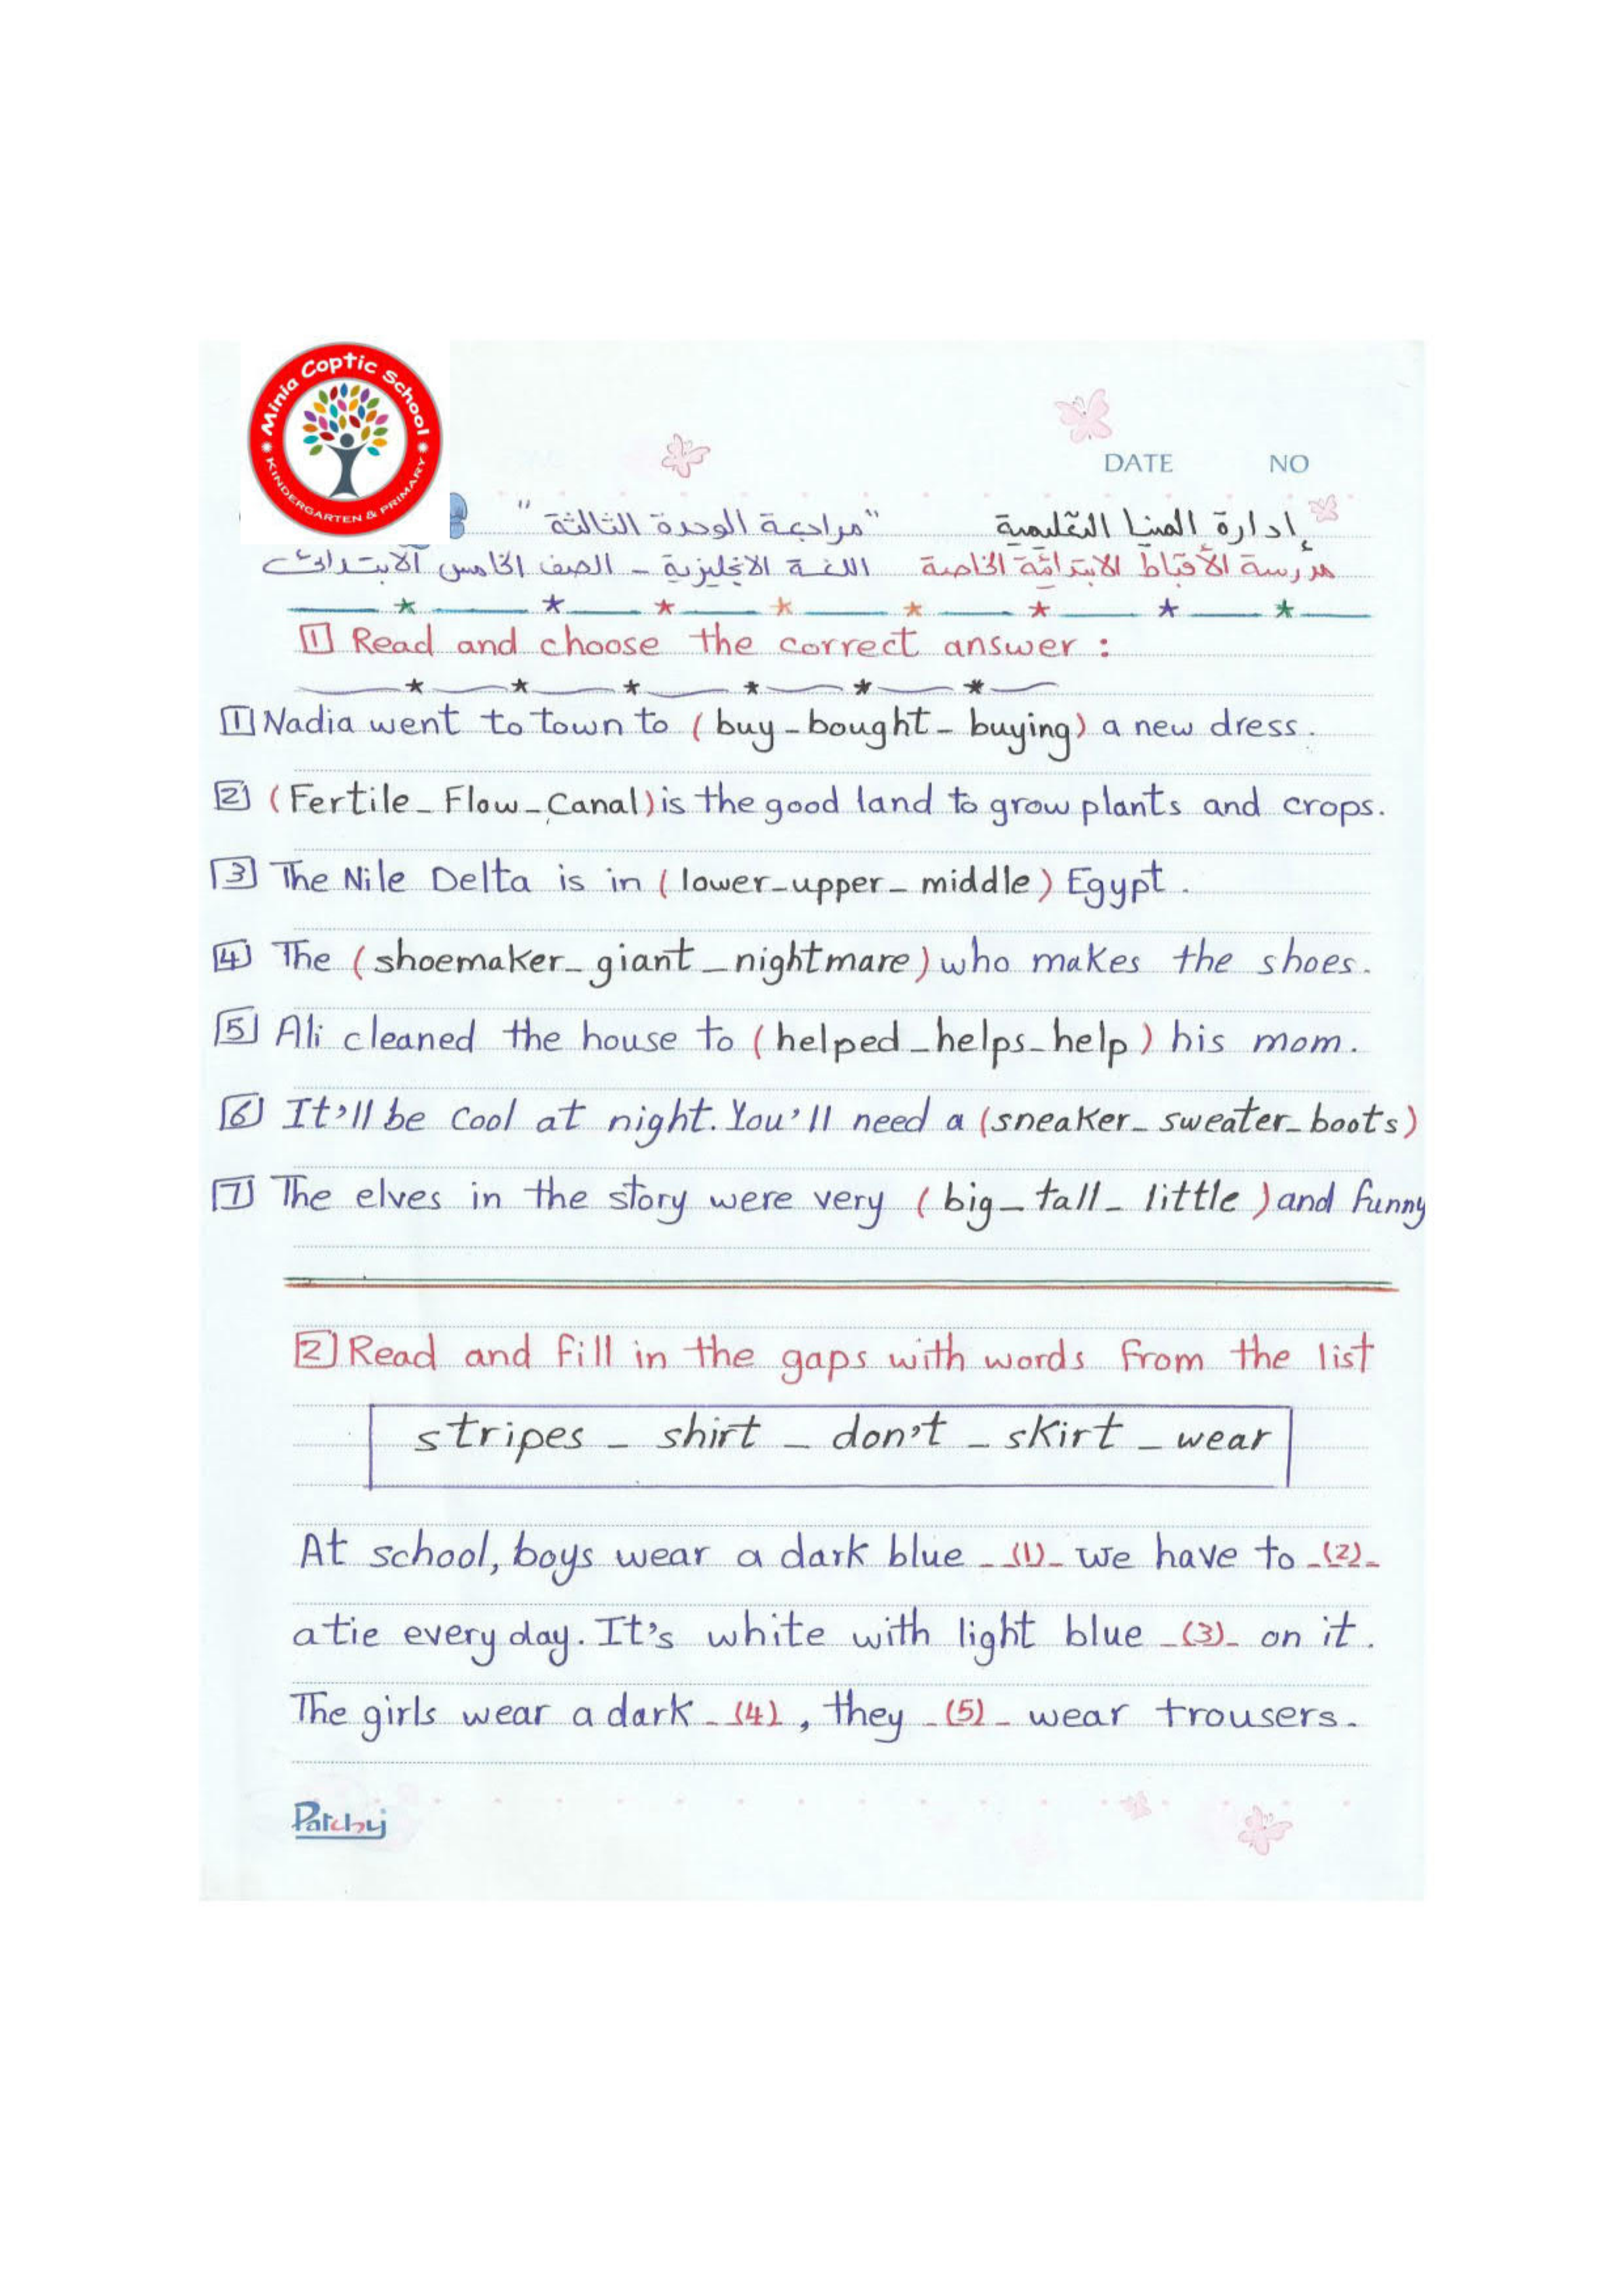 Minia Coptic School
KINDERGARTEN & PRIMARY
DATE NO
إدارة المنيا التعليمية "مراجعة الوحدة الثالثة"
مدرسة الأقباط الابتدائية الخاصة اللغة الانجليزية - الصف الخامس الابتدائى
1 Read and choose the correct answer :
1 Nadia went to town to ( buy - bought - buying) a new dress.
2 ( Fertile - Flow - Canal) is the good land to grow plants and crops.
3 The Nile Delta is in ( lower - upper - middle ) Egypt.
4 The ( shoemaker - giant - nightmare ) who makes the shoes.
5 Ali cleaned the house to ( helped - helps - help ) his mom.
6 It'll be cool at night. You'll need a (sneaker - sweater - boots)
7 The elves in the story were very ( big - tall - little ) and funny
2 Read and fill in the gaps with words from the list
stripes - shirt - don't - skirt - wear
At school, boys wear a dark blue -(1)- we have to -(2)-
a tie every day. It's white with light blue -(3)- on it.
The girls wear a dark -(4), they -(5)- wear trousers.
Patchy